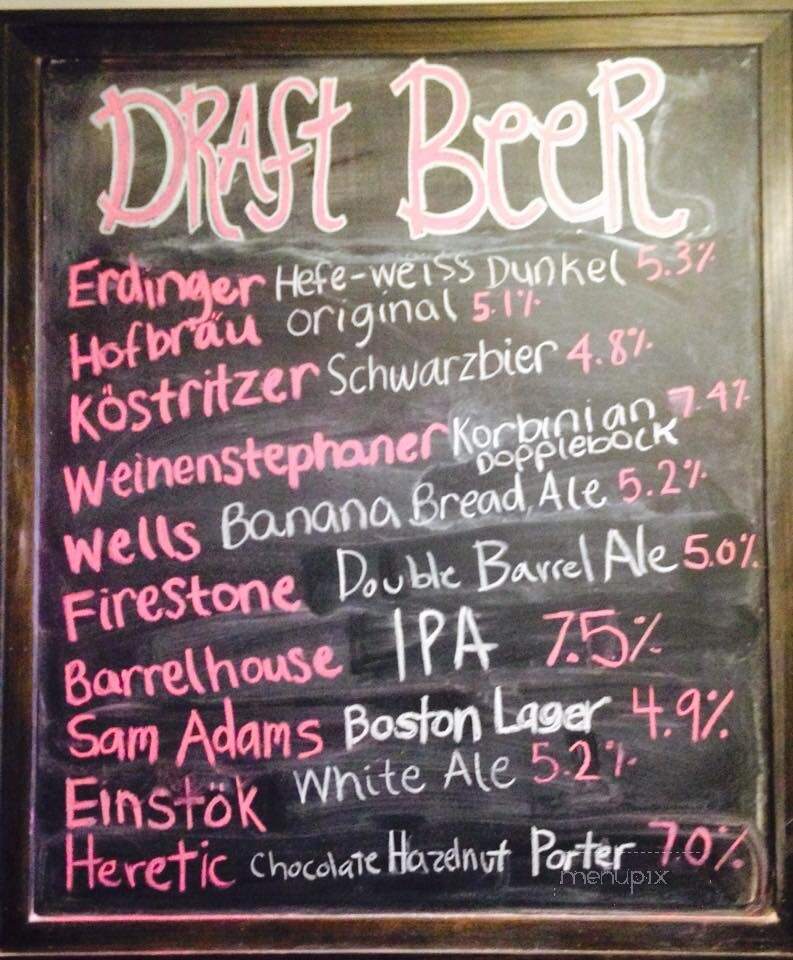 DRAft BeeR
Erdinger Hefe-weiss Dunkel 5.3%
Hofbräu original 5.1%
Köstritzer Schwarzbier 4.8%
Weinenstephaner Korbinian 7.4%
Dopplebock
Wells Banana Bread Ale 5.2%
Firestone Double Barrel Ale 5.0%
Barrelhouse IPA 7.5%
Sam Adams Boston Lager 4.9%
Einstök White Ale 5.2%
Heretic Chocolate Hazelnut Porter 7.0%
menupix